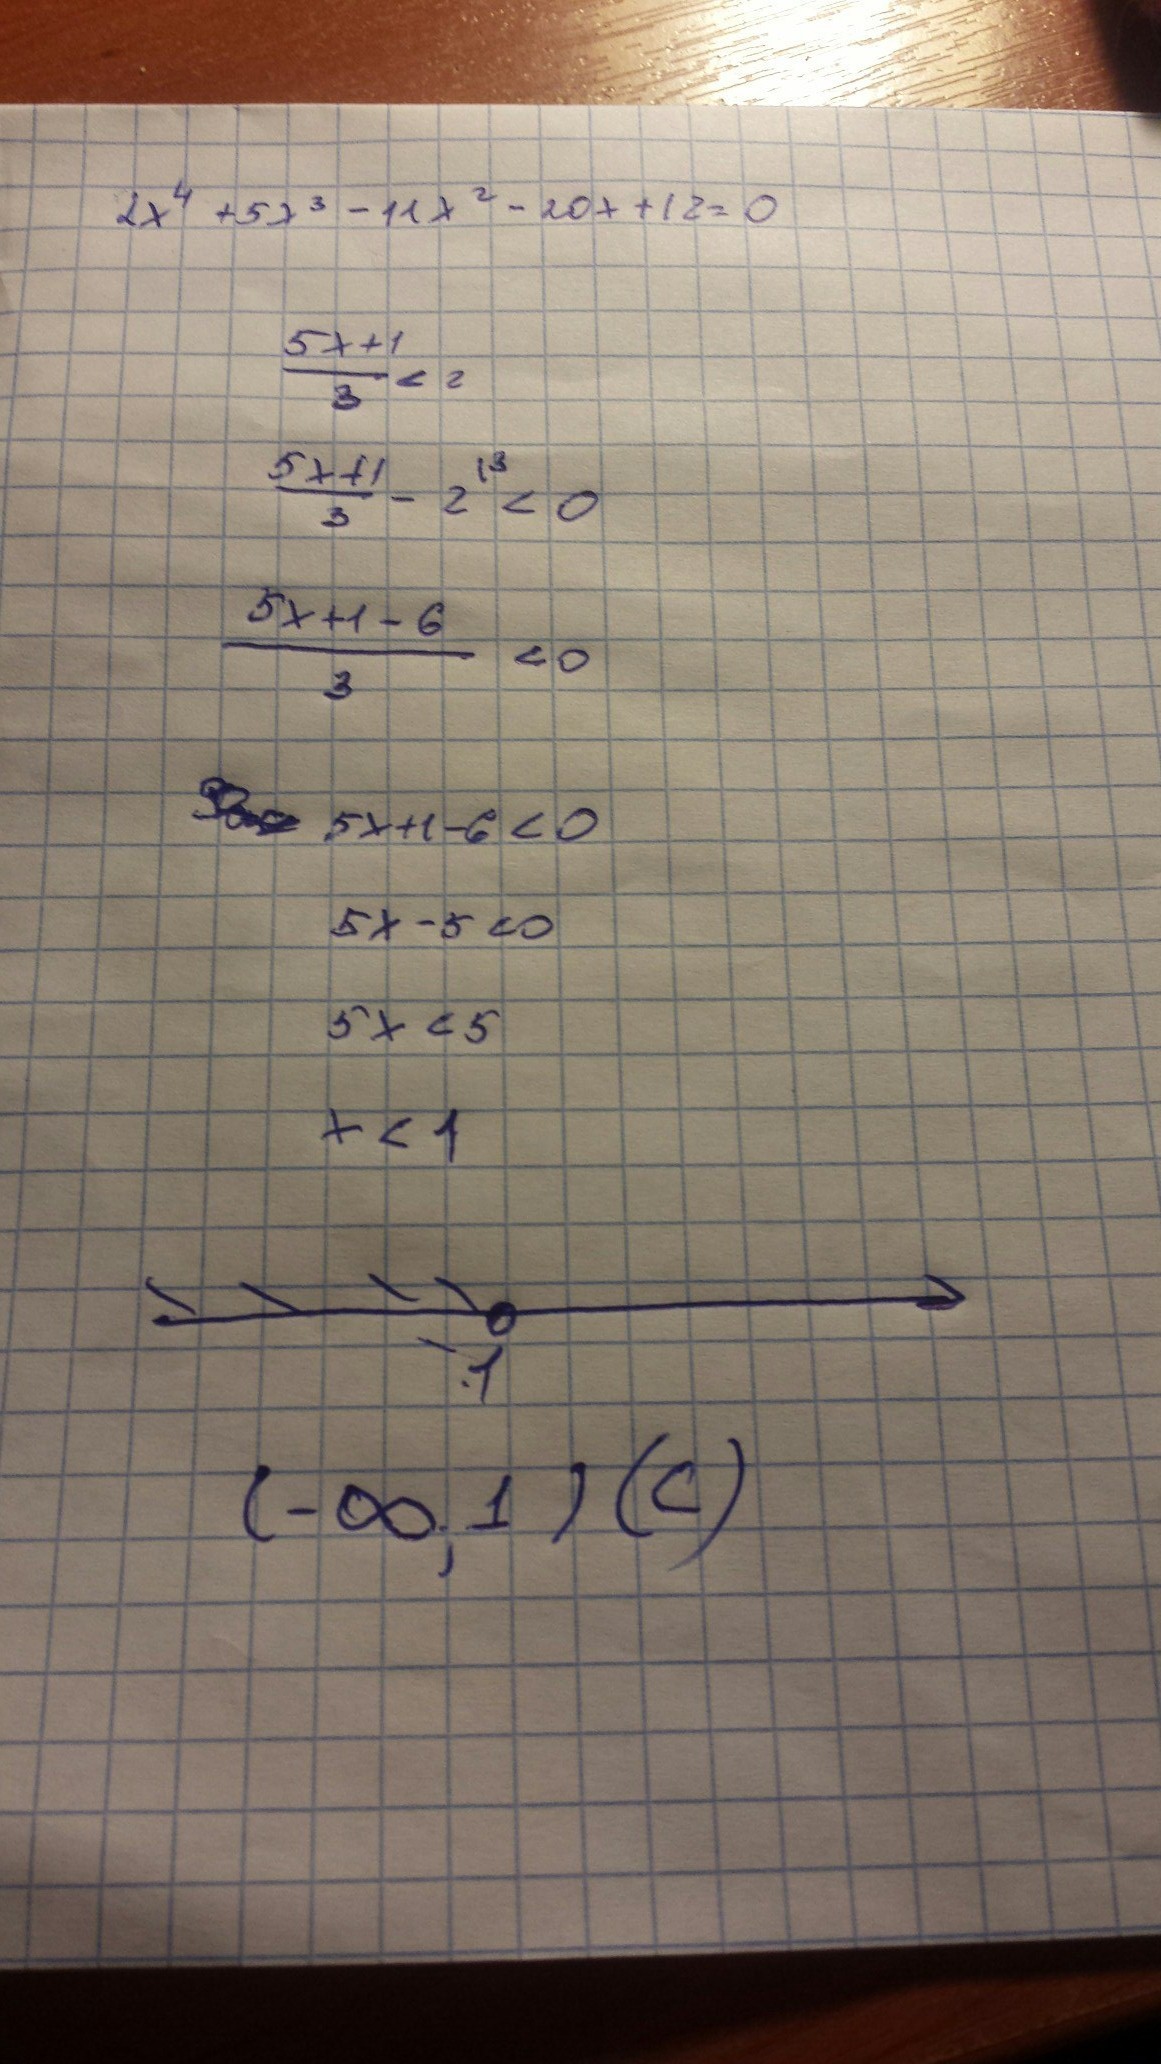 2x⁴ + 5x³ - 11x² - 20x + 12 = 0
5x+1
3 < 2
5x+1
3 - 2 ⁽³ < 0
5x+1-6
3 < 0
5x+1-6 < 0
5x-5 < 0
5x < 5
x < 1
1
(-∞, 1) (c)